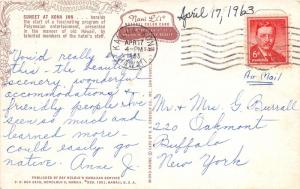 April 17, 1963
SUNSET AT KONA INN ... heralds
the start of a fascinating program of
Polynesian entertainment, presented
in the manner of old Hawaii, by
talented members of the hotel's staff.
You'd really love
this - the beautiful
scenery, wonderful
accommodations &
friendly people. I've
seen so much and
learned more -
could easily go
native. Anne J.
APR 17
4-PM
1963
6¢
Air Mail
Mr. & Mrs. G. Burrall
220 Oakmont
Buffalo
New York
PUBLISHED BY RAY HELBIG'S HAWAIIAN SERVICE
P. O. BOX 2835, HONOLULU 3, HAWAII